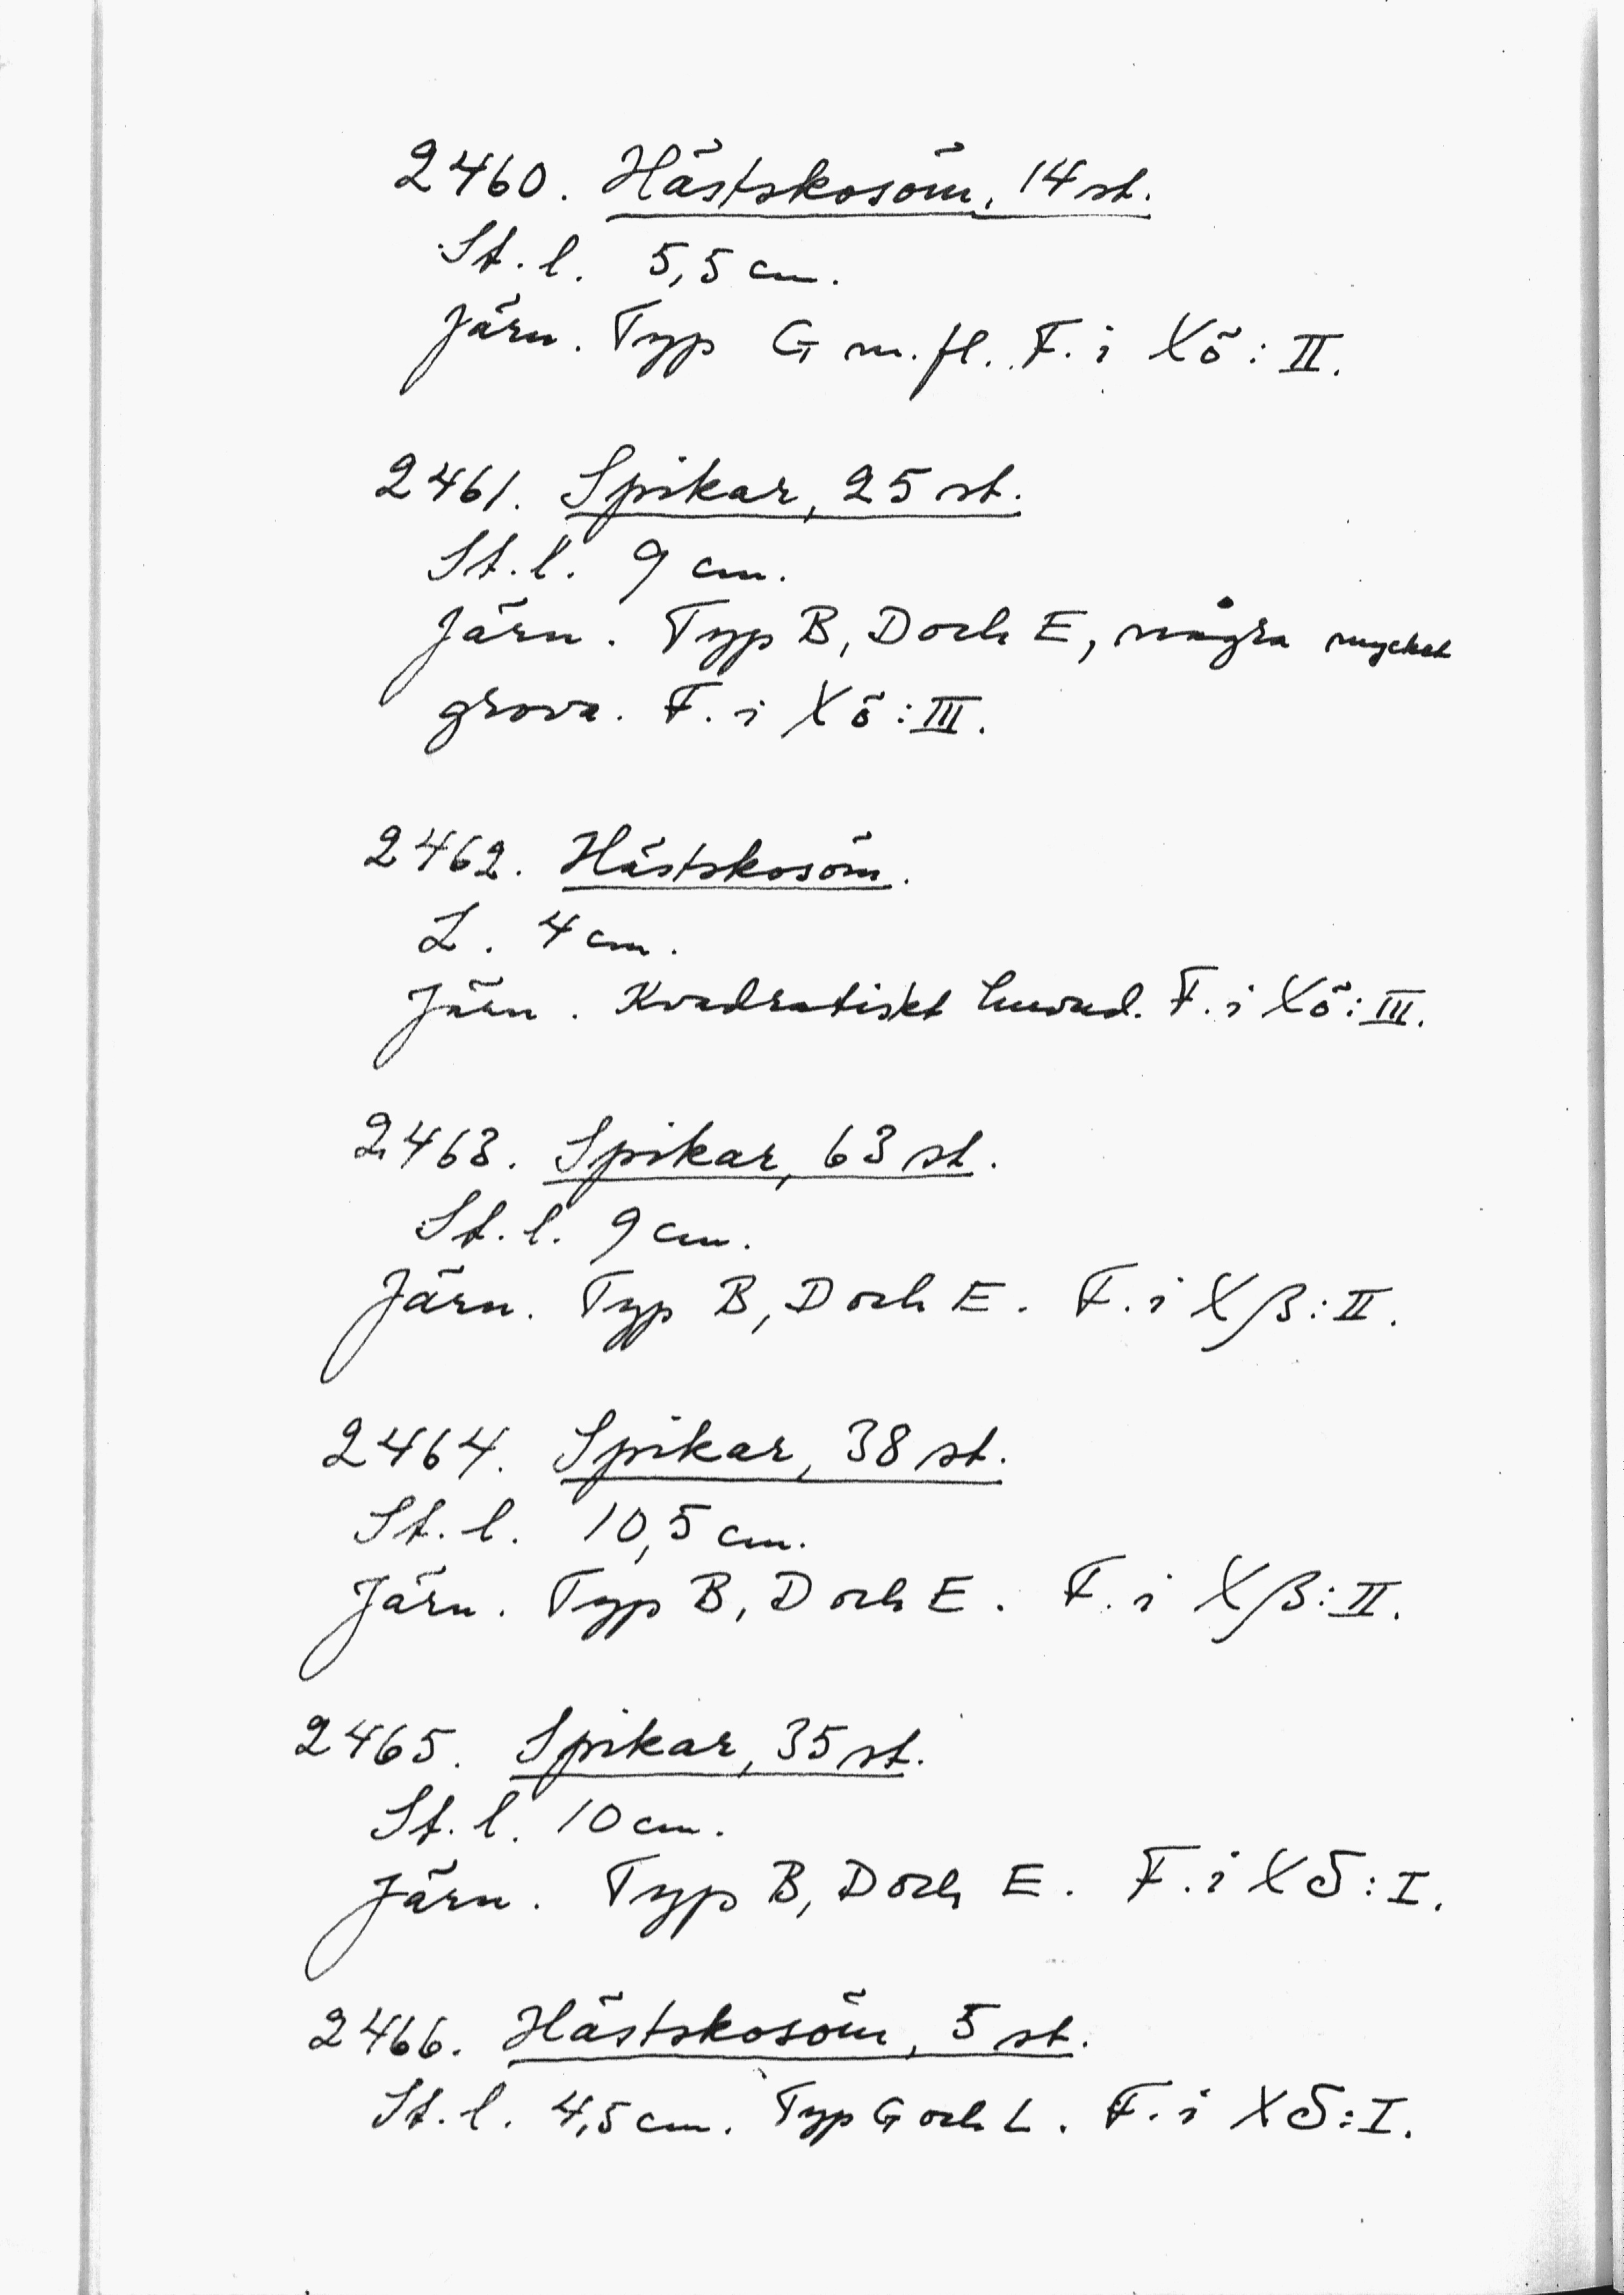 2460. Hästskosöm, 14 st.
St. l. 5,5 cm.
Järn. Typ G m. fl. F. i Xö: II.
2461. Spikar, 25 st.
St. l. 9 cm.
Järn. Typ B, D och E, några mycket
grova. F. i Xö: III.
2462. Hästskosöm.
L. 4 cm.
Järn. Kvadratiskt huvud. F. i Xö: III.
2463. Spikar, 63 st.
St. l. 9 cm.
Järn. Typ B, D och E. F. i Xβ: II.
2464. Spikar, 38 st.
St. l. 10,5 cm.
Järn. Typ B, D och E. F. i Xβ: II.
2465. Spikar, 35 st.
St. l. 10 cm.
Järn. Typ B, D och E. F. i Xδ: I.
2466. Hästskosöm, 5 st.
St. l. 4,5 cm. Typ G och L. F. i Xδ: I.